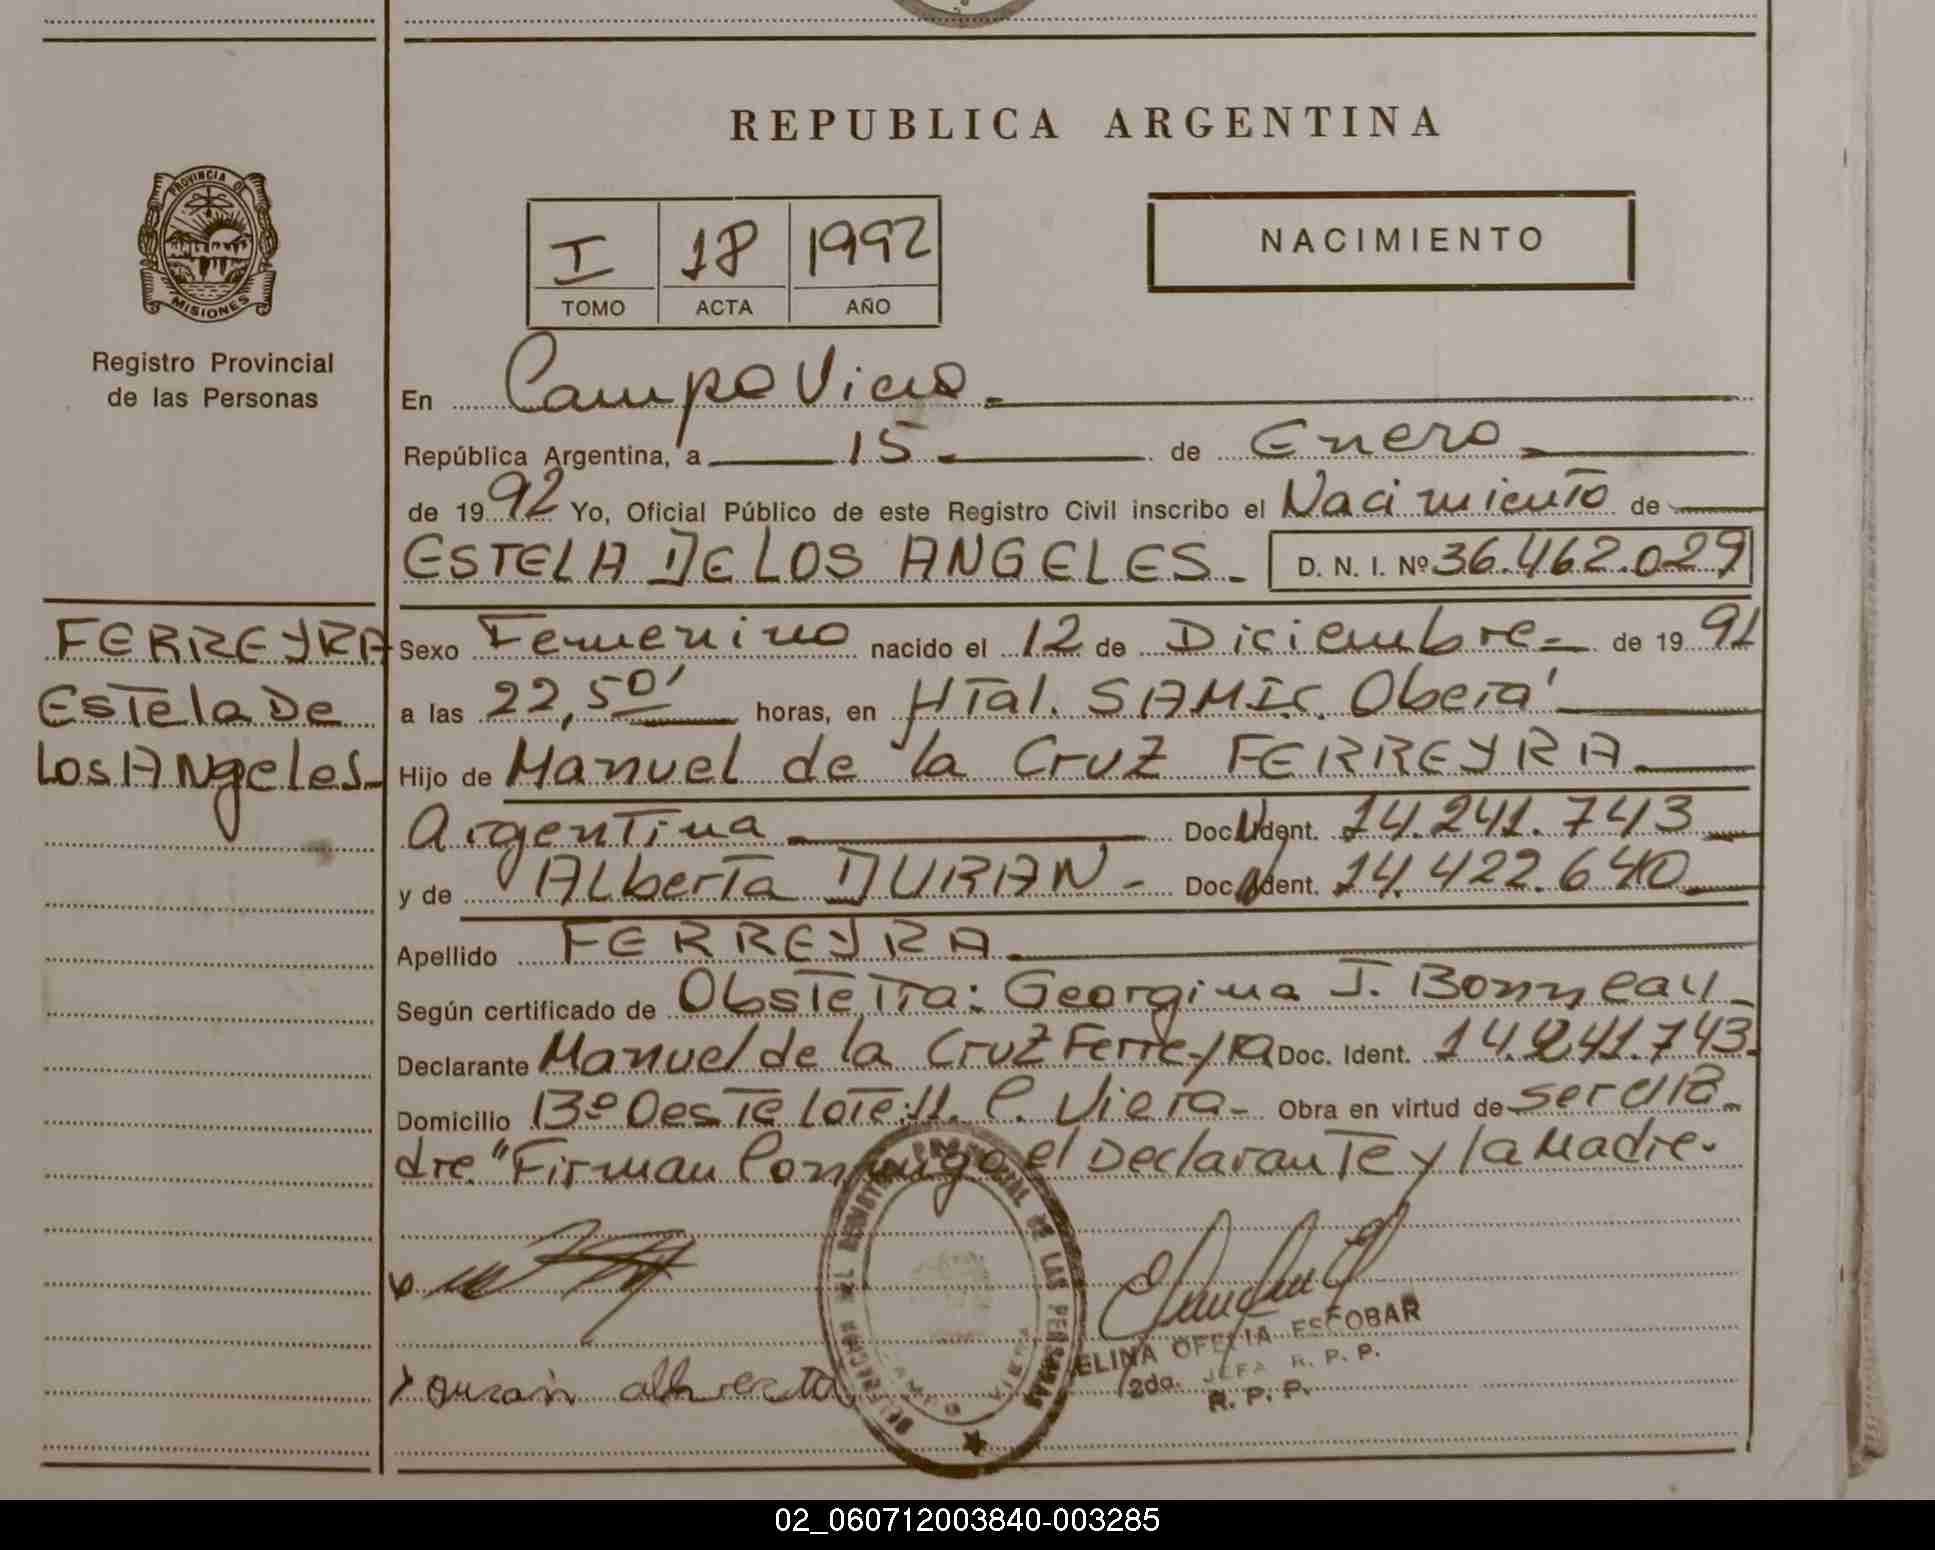 REPUBLICA ARGENTINA
PROVINCIA DE
MISIONES
Registro Provincial
de las Personas
I 18 1992
TOMO ACTA AÑO
NACIMIENTO
En Campo Viera
República Argentina, a 15 de Enero
de 1992 Yo, Oficial Público de este Registro Civil inscribo el Nacimiento de
ESTELA DE LOS ANGELES D. N. I. Nº 36.462.029
FERREYRA
Estela De
Los Angeles
Sexo Femenino nacido el 12 de Diciembre de 1991
a las 22,50' horas, en HTal. SAMIC. Oberá
Hijo de Manuel de la Cruz FERREYRA
Argentina Doc. Ident. 14.241.743
y de Alberta DURAN Doc. Ident. 14.422.640
Apellido FERREYRA
Según certificado de Obstetra: Georgina J. Bonneau
Declarante Manuel de la Cruz Ferreyra Doc. Ident. 14.241.743
Domicilio 13º Oeste Lote: 11. C. Viera Obra en virtud de ser el Pa
dre." Firman Conmigo el Declarante y la Madre.
DIRECCION DEL REGISTRO PROVINCIAL DE LAS PERSONAS
VIERA
ELINA OFELIA ESCOBAR
2da. JEFA R. P. P.
R. P. P.
Duran alberta
02_060712003840-003285